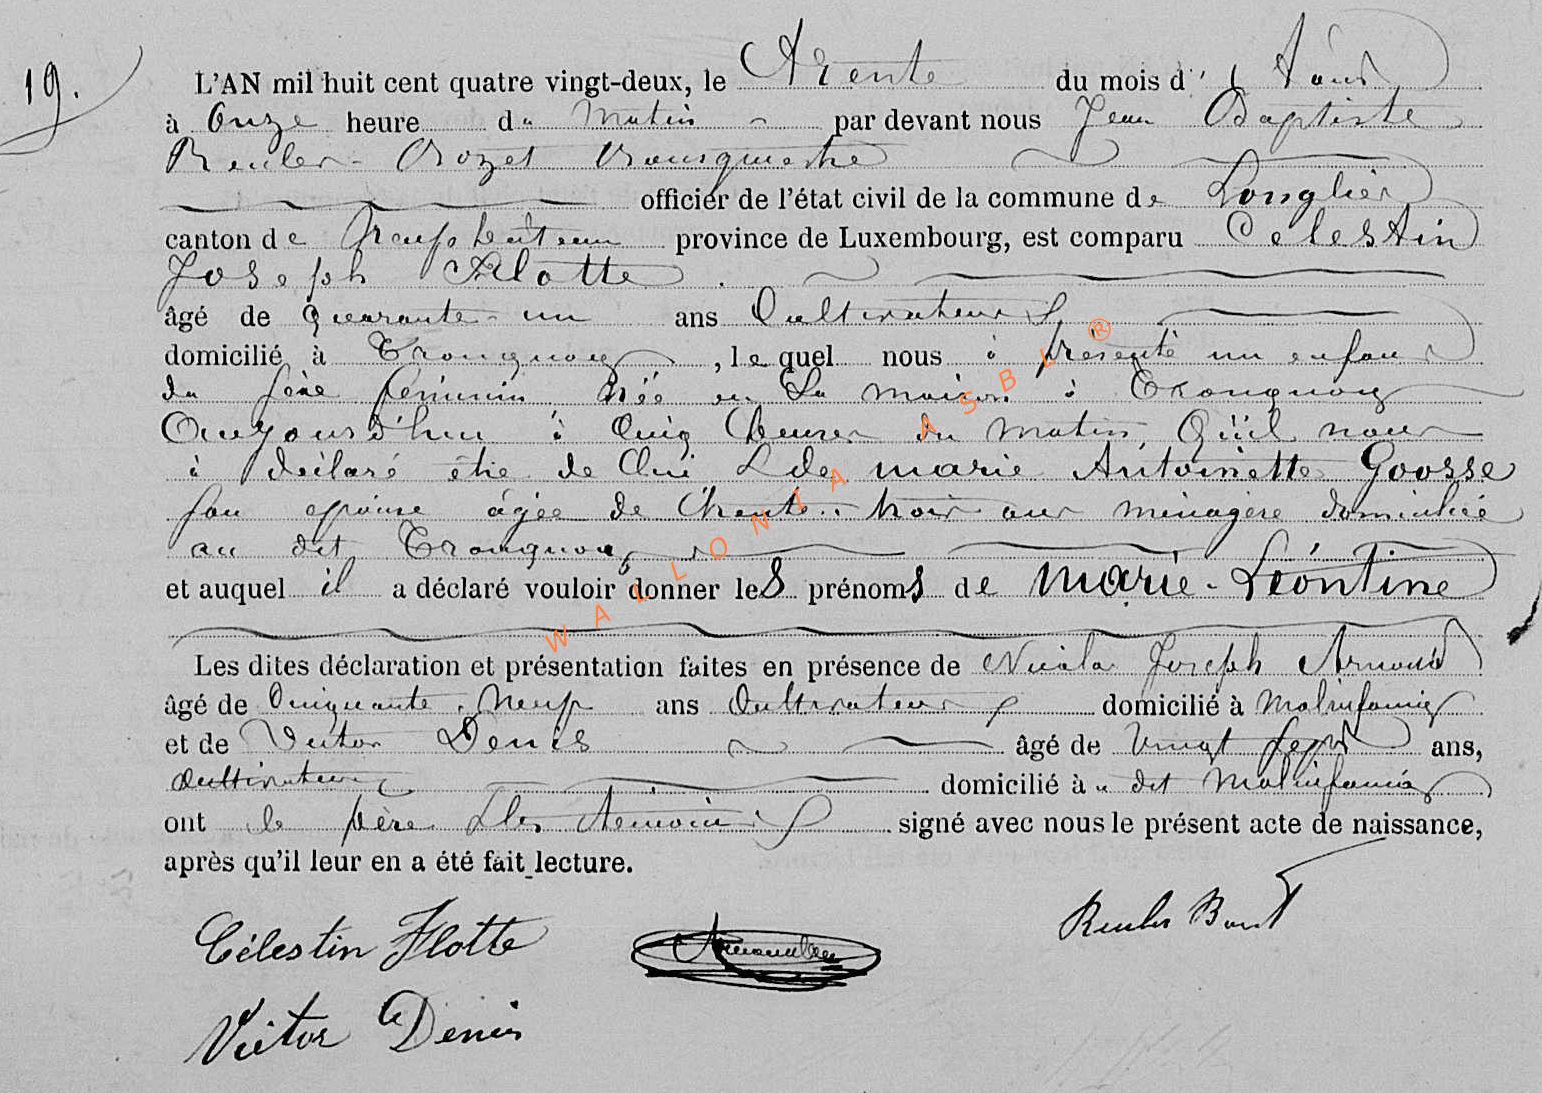 19.
L'AN mil huit cent quatre vingt-deux, le Trente du mois d' Août
à Onze heure du Matin par devant nous Jean Baptiste
Reuler Bourgmestre
officier de l'état civil de la commune de Longlier
canton de Neufchâteau province de Luxembourg, est comparu Celestin
Joseph Flotte
âgé de quarante-un ans Cultivateur
domicilié à Tronquoy, lequel nous à présenté un enfant
du sèxe féminin née en Sa maison à Tronquoy
Aujourd'hui à Cinq heures du Matin, Qu'il nous
à déclaré être de lui & de marie Antoinette Goosse
son épouse âgée de trente-trois ans ménagère domiciliée
au dit Tronquoy
et auquel il a déclaré vouloir donner les prénoms de Marie-Léontine
Les dites déclaration et présentation faites en présence de Nicolas Joseph Arnould
âgé de Cinquante-Neuf ans Cultivateur domicilié à Molinfaing
et de Victor Denis âgé de Vingt Sept ans,
Cultivateur domicilié à u dit Molinfaing
ont le père & les témoins signé avec nous le présent acte de naissance,
après qu'il leur en a été fait lecture.
Célestin Flotte
Victor Denis
WALLONIA ASBL ®